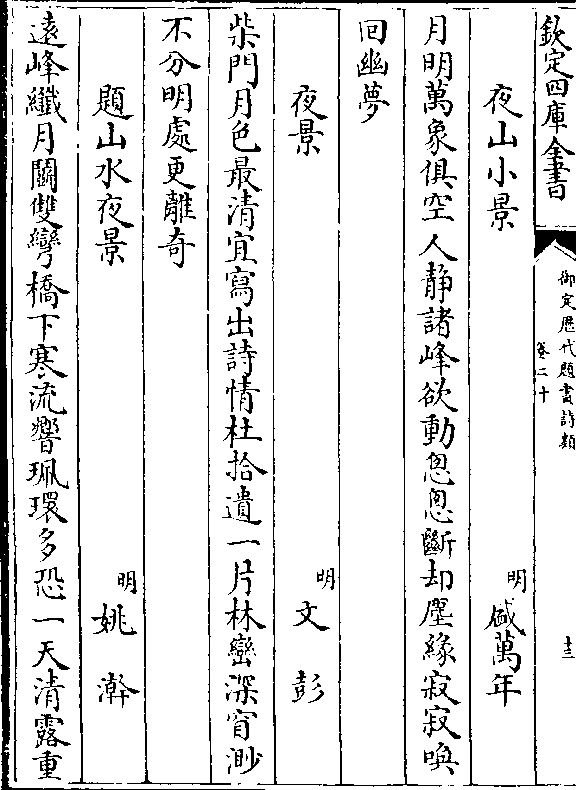 欽定四庫全書
御定歴代題畫詩類
卷二十
十三
夜山小景
明 盛萬年
月明萬象俱空人静諸峰欲動怱怱斷却塵緣寂寂喚
回幽夢
夜景
明 文彭
柴門月色最清宜寫出詩情杜拾遺一片林巒深窅渺
不分明處更離奇
題山水夜景
明 姚澣
遠峰纖月鬭雙彎橋下寒流響珮環多恐一天清露重